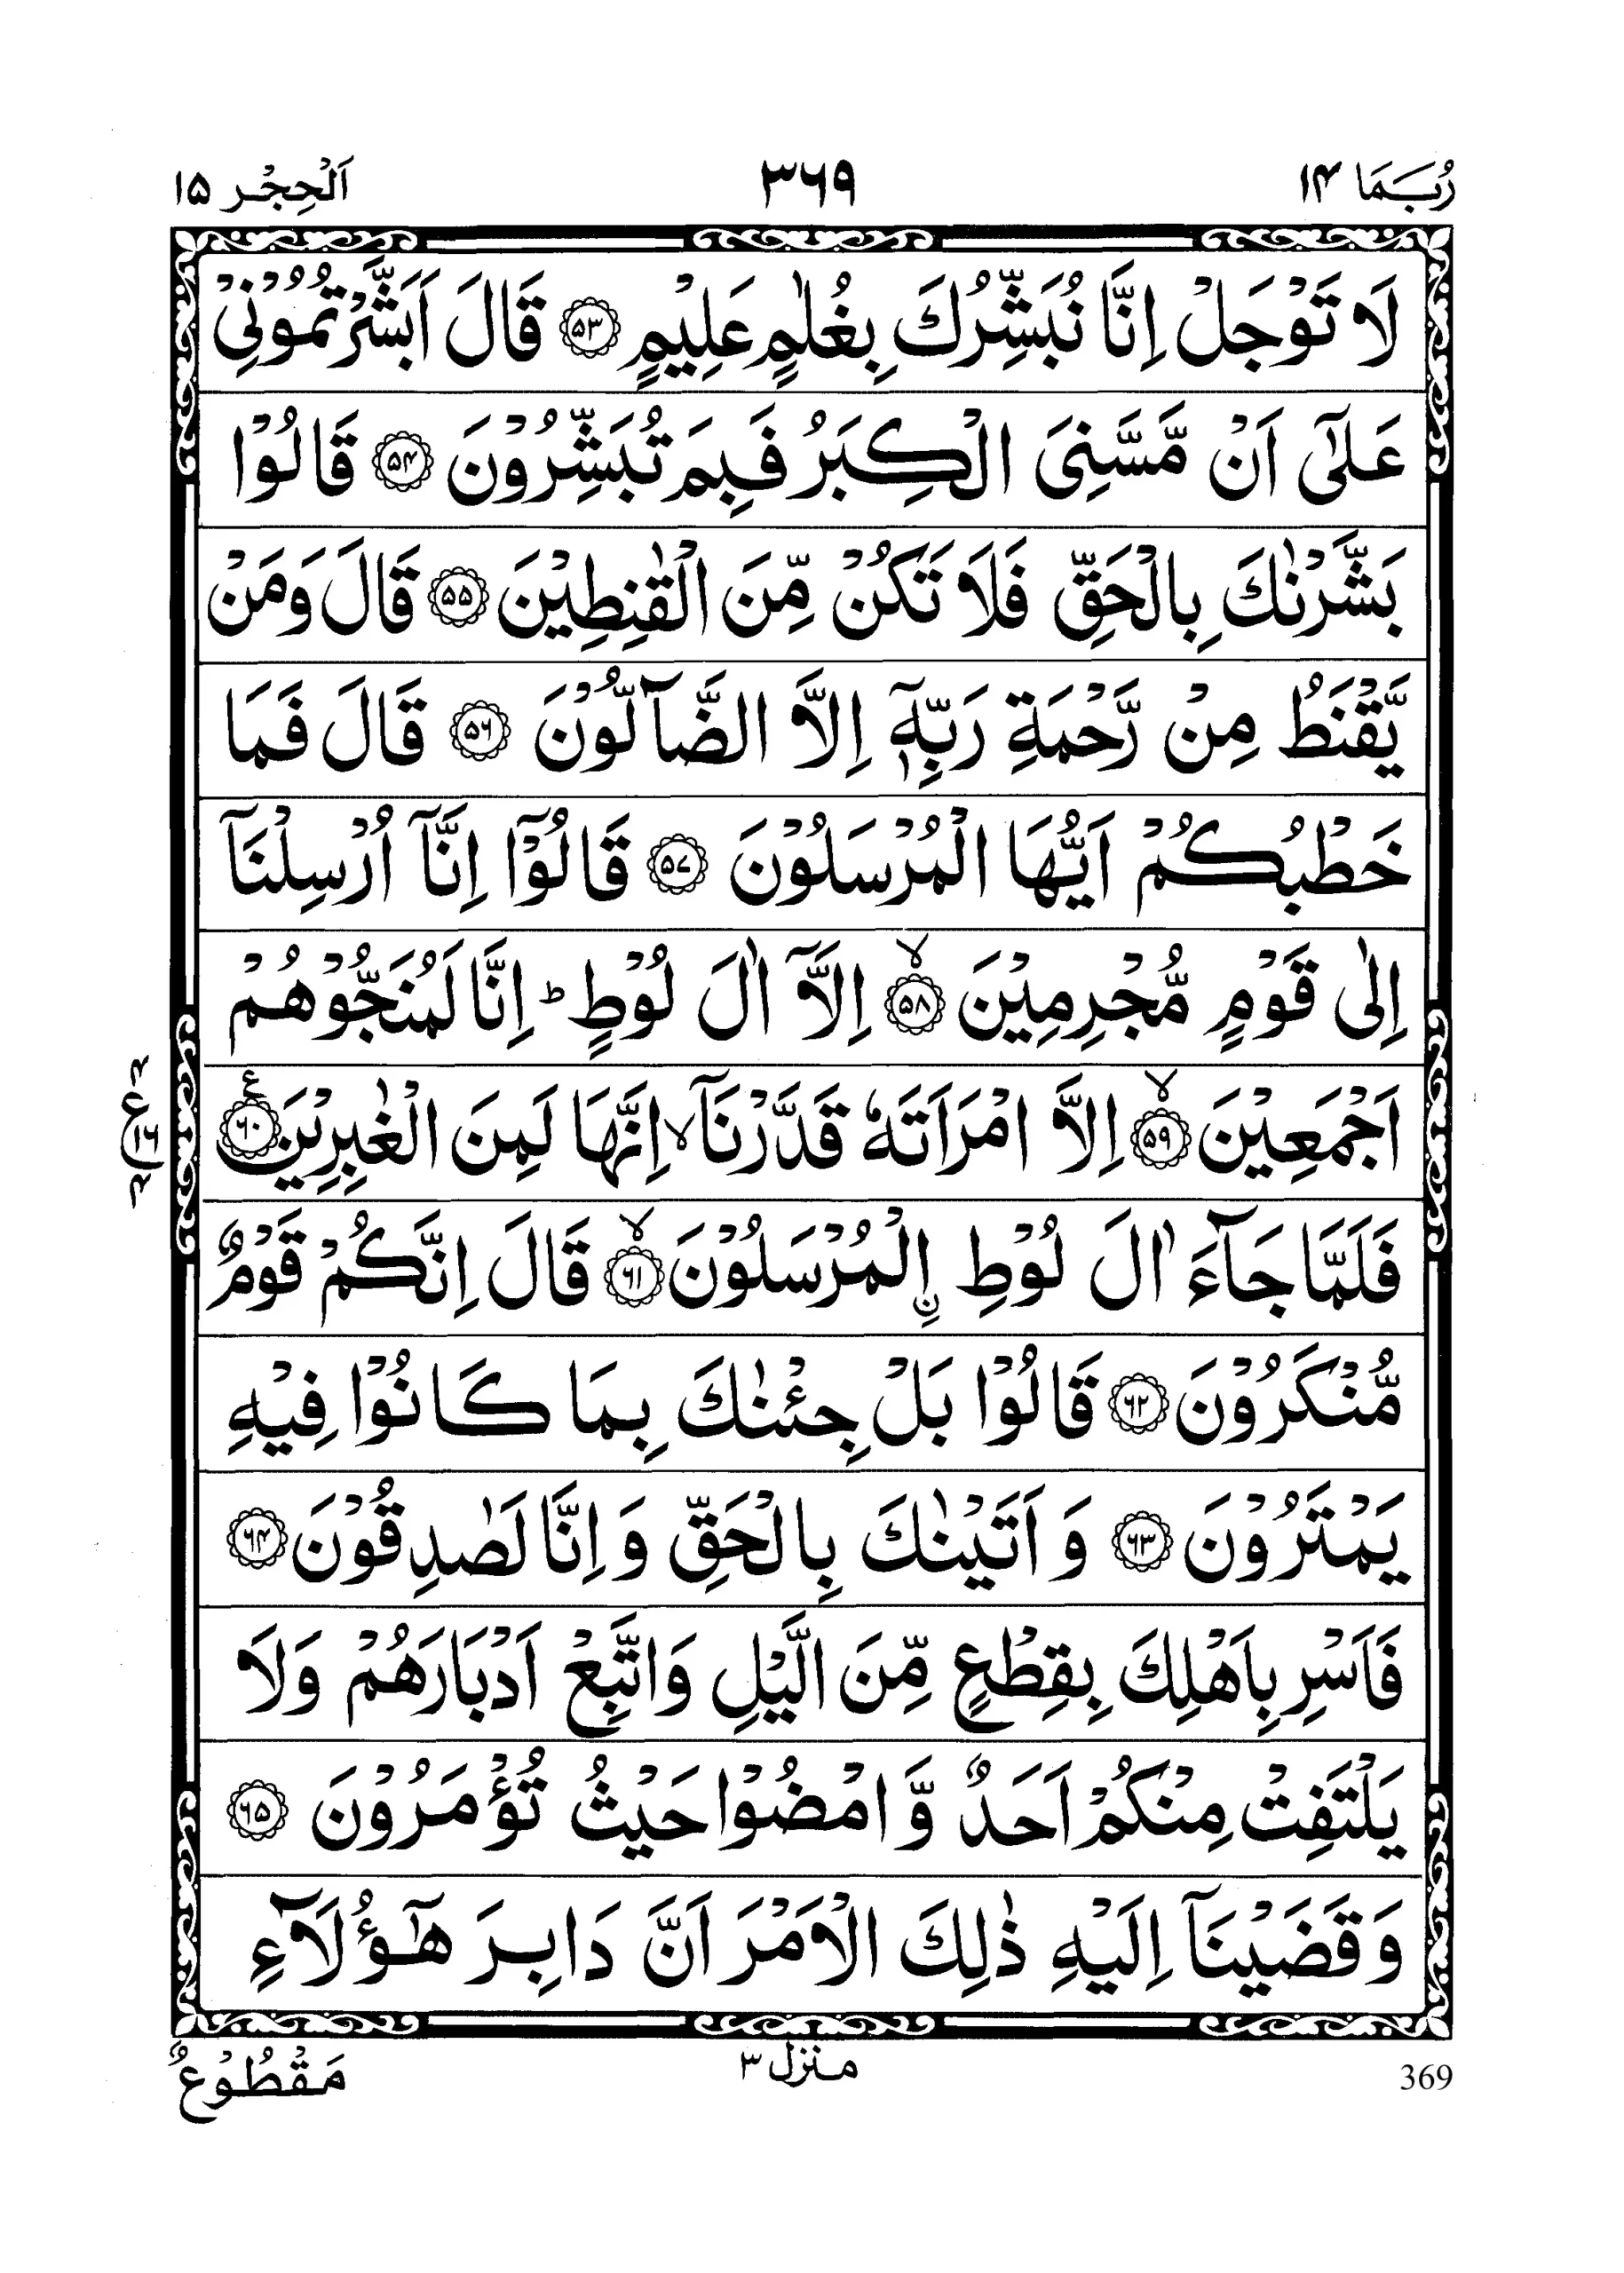 رُبَمَا ١۴
٣٦٩
اَلْحِجْر ١۵
لَا تَوْجَلْ اِنَّا نُبَشِّرُكَ بِغُلٰمٍ عَلِيْمٍ ۵٣ قَالَ اَبَشَّرْتُمُوْنِيْ
عَلٰٓى اَنْ مَّسَّنِىَ الْكِبَرُ فَبِمَ تُبَشِّرُوْنَ ۵۴ قَالُوْا
بَشَّرْنٰكَ بِالْحَقِّ فَلَا تَكُنْ مِّنَ الْقٰنِطِيْنَ ۵۵ قَالَ وَمَنْ
يَّقْنَطُ مِنْ رَّحْمَةِ رَبِّهٖٓ اِلَّا الضَّآلُّوْنَ ۵٦ قَالَ فَمَا
خَطْبُكُمْ اَيُّهَا الْمُرْسَلُوْنَ ۵٧ قَالُوْٓا اِنَّآ اُرْسِلْنَآ
اِلٰى قَوْمٍ مُّجْرِمِيْنَ ۵٨ۙ اِلَّآ اٰلَ لُوْطٍ ؕ اِنَّا لَمُنَجُّوْهُمْ
اَجْمَعِيْنَ ۵٩ۙ اِلَّا امْرَاَتَهٗ قَدَّرْنَآ ۙ اِنَّهَا لَمِنَ الْغٰبِرِيْنَ ٦٠ ع
٤ ع ١٦ ٤
فَلَمَّا جَآءَ اٰلَ لُوْطِ ِۨالْمُرْسَلُوْنَ ٦١ۙ قَالَ اِنَّكُمْ قَوْمٌ
مُّنْكَرُوْنَ ٦٢ قَالُوْا بَلْ جِئْنٰكَ بِمَا كَانُوْا فِيْهِ
يَمْتَرُوْنَ ٦٣ وَ اَتَيْنٰكَ بِالْحَقِّ وَ اِنَّا لَصٰدِقُوْنَ ٦۴
فَاَسْرِ بِاَهْلِكَ بِقِطْعٍ مِّنَ الَّيْلِ وَاتَّبِعْ اَدْبَارَهُمْ وَلَا
يَلْتَفِتْ مِنْكُمْ اَحَدٌ وَّ امْضُوْا حَيْثُ تُؤْمَرُوْنَ ٦۵
وَ قَضَيْنَآ اِلَيْهِ ذٰلِكَ الْاَمْرَ اَنَّ دَابِرَ هٰٓؤُلَآءِ
369
منزل ٣
مَقْطُوْعٌ